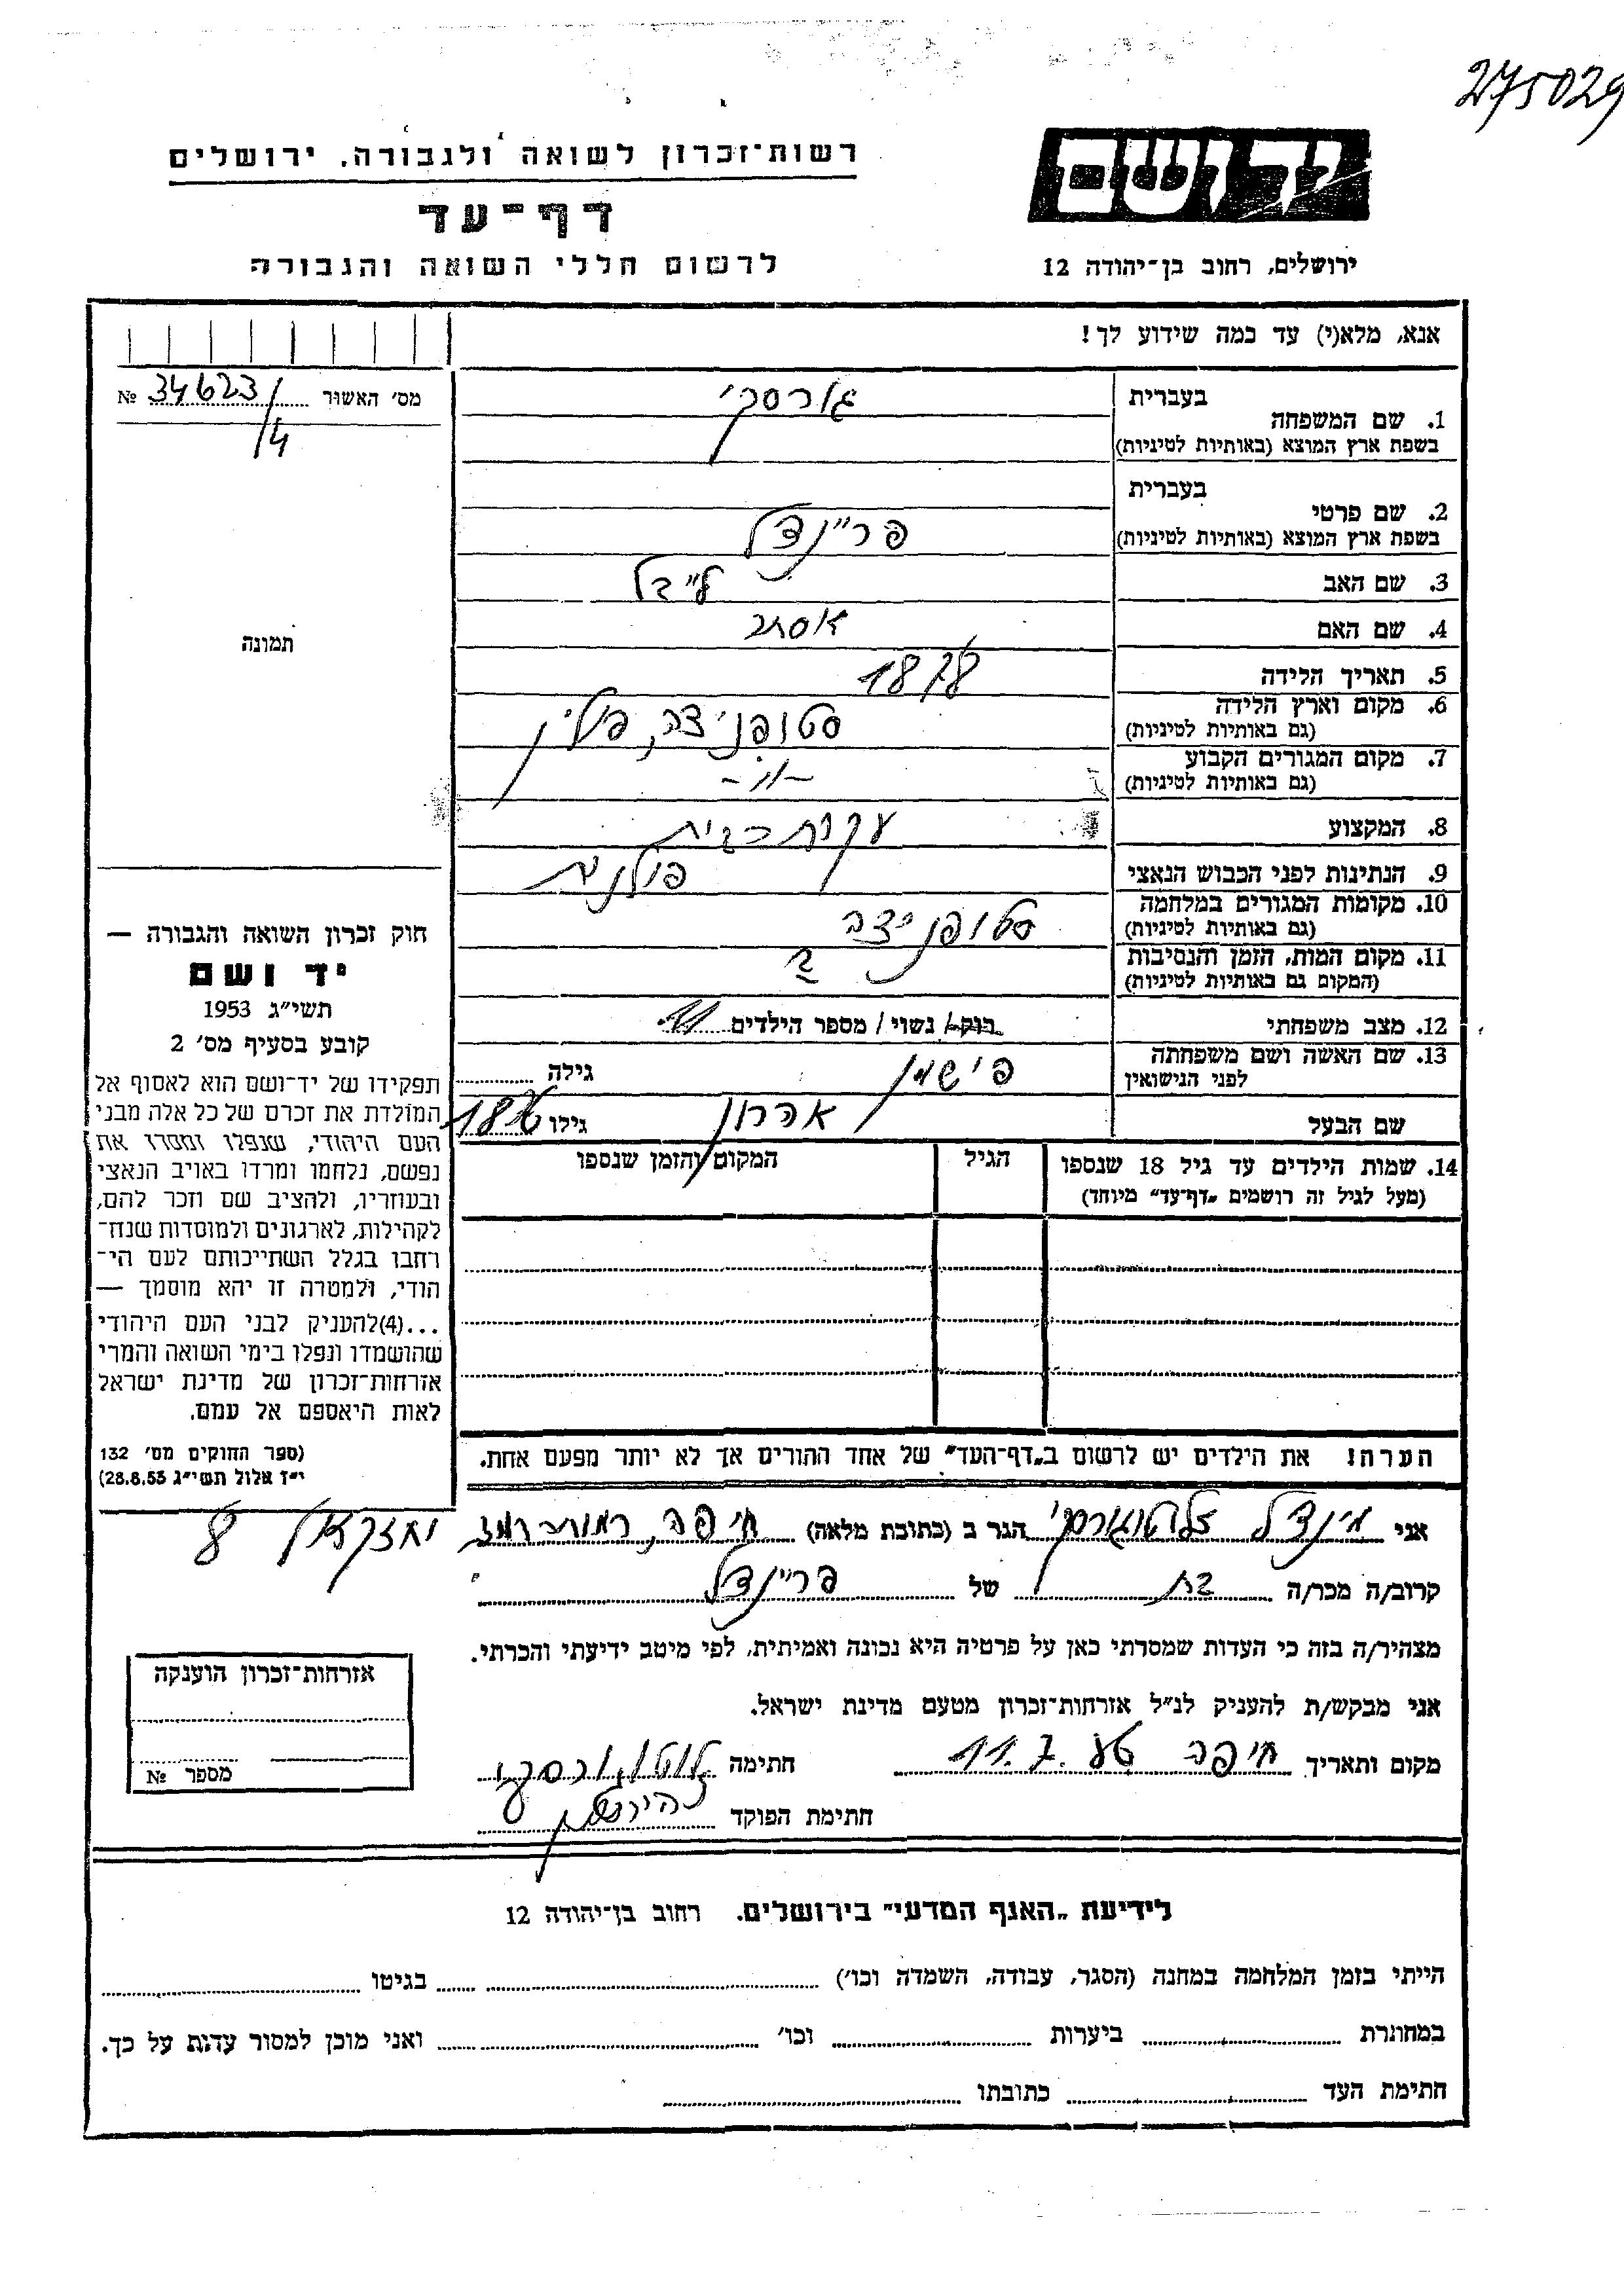 275029
יד ושם
רשות־זכרון לשואה ולגבורה. ירושלים
דף־עד
לרשום חללי השואה והגבורה
ירושלים, רחוב בן־יהודה 12
אנא, מלא(י) עד כמה שידוע לך!
מס' האשור 34623/4 №
תמונה
1. שם המשפחה בעברית גורסקי
בשפת ארץ המוצא (באותיות לטיניות)
בעברית
2. שם פרטי
בשפת ארץ המוצא (באותיות לטיניות) פריינדל
3. שם האב לייבל
4. שם האם אסתר
5. תאריך הלידה 1878
6. מקום וארץ הלידה סטופניצה, פולין
(גם באותיות לטיניות)
7. מקום המגורים הקבוע -"-
(גם באותיות לטיניות)
8. המקצוע עקרת בית
9. הנתינות לפני הכבוש הנאצי פולנית
10. מקומות המגורים במלחמה סטופניצה
(גם באותיות לטיניות)
11. מקום המות, הזמן והנסיבות ?
(המקום גם באותיות לטיניות)
12. מצב משפחתי רוק/ נשוי/ מספר הילדים 11.
13. שם האשה ושם משפחתה לפני הנישואין פישמן גילה
שם הבעל אהרון גילו
14. שמות הילדים עד גיל 18 שנספו הגיל המקום והזמן שנספו
(מעל לגיל זה רושמים „דף־עד" מיוחד)
חוק זכרון השואה והגבורה —
יד ושם
תשי"ג 1953
קובע בסעיף מס' 2
תפקידו של יד־ושם הוא לאסוף אל
המולדת את זכרם של כל אלה מבני
העם היהודי, שנפלו ומסרו את
נפשם, נלחמו ומרדו באויב הנאצי
ובעוזריו, ולהציב שם וזכר להם,
לקהילות, לארגונים ולמוסדות שנח־
רבו בגלל השתייכותם לעם הי־
הודי, ולמטרה זו יהא מוסמך —
...(4)להעניק לבני העם היהודי
שהושמדו ונפלו בימי השואה והמרי
אזרחות־זכרון של מדינת ישראל
לאות היאספם אל עמם.
(ספר החוקים מס' 132
י"ז אלול תשי"ג 28.8.53)
הערה! את הילדים יש לרשום ב„דף־העד" של אחד ההורים אך לא יותר מפעם אחת.
אני מינדל זלוטוגורסקי הגר ב (כתובת מלאה) חיפה, רמת רמז יחזקאל 8
קרוב/ה מכר/ה בת של פריינדל
מצהיר/ה בזה כי העדות שמסרתי כאן על פרטיה היא נכונה ואמיתית, לפי מיטב ידיעתי והכרתי.
אני מבקש/ת להעניק לנ"ל אזרחות־זכרון מטעם מדינת ישראל.
מקום ותאריך חיפה 11.7. חתימה
חתימת הפוקד
אזרחות־זכרון הוענקה
מספר №
לידיעת „האגף המדעי" בירושלים. רחוב בן־יהודה 12
הייתי בזמן המלחמה במחנה (הסגר, עבודה, השמדה וכו') בגיטו
במחתרת ביערות וכו' ואני מוכן למסור עדות על כך.
חתימת העד כתובתו